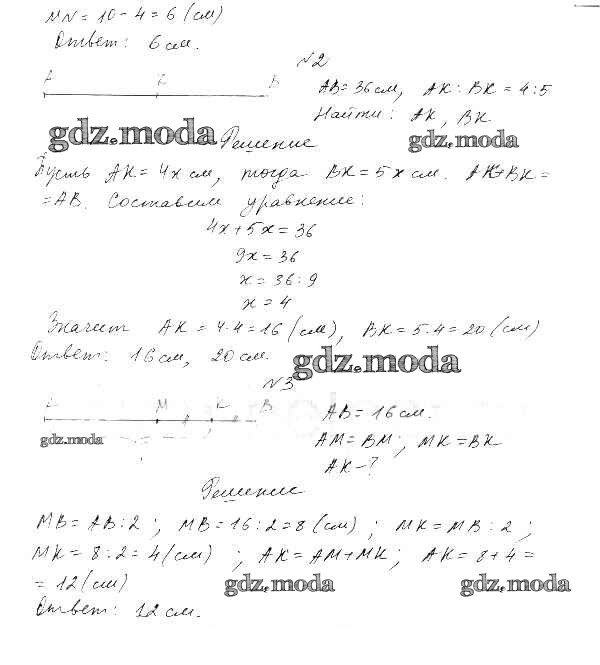 MN = 10 - 4 = 6 (см)
Ответ: 6 см.
№2
A K B
AB = 36 см, AK : BK = 4 : 5
Найти: AK, BK
gdz.moda Решение gdz.moda
Пусть AK = 4x см, тогда BK = 5x см. AK + BK =
= AB. Составим уравнение:
4x + 5x = 36
9x = 36
x = 36 : 9
x = 4
Значит AK = 4·4 = 16 (см), BK = 5·4 = 20 (см)
Ответ: 16 см, 20 см.
gdz.moda
№3
M K B
AB = 16 см.
gdz.moda
AM = BM; MK = BK
AK - ?
Решение
MB = AB : 2; MB = 16 : 2 = 8 (см); MK = MB : 2;
MK = 8 : 2 = 4 (см); AK = AM + MK; AK = 8 + 4 =
= 12 (см)
gdz.moda gdz.moda
Ответ: 12 см.